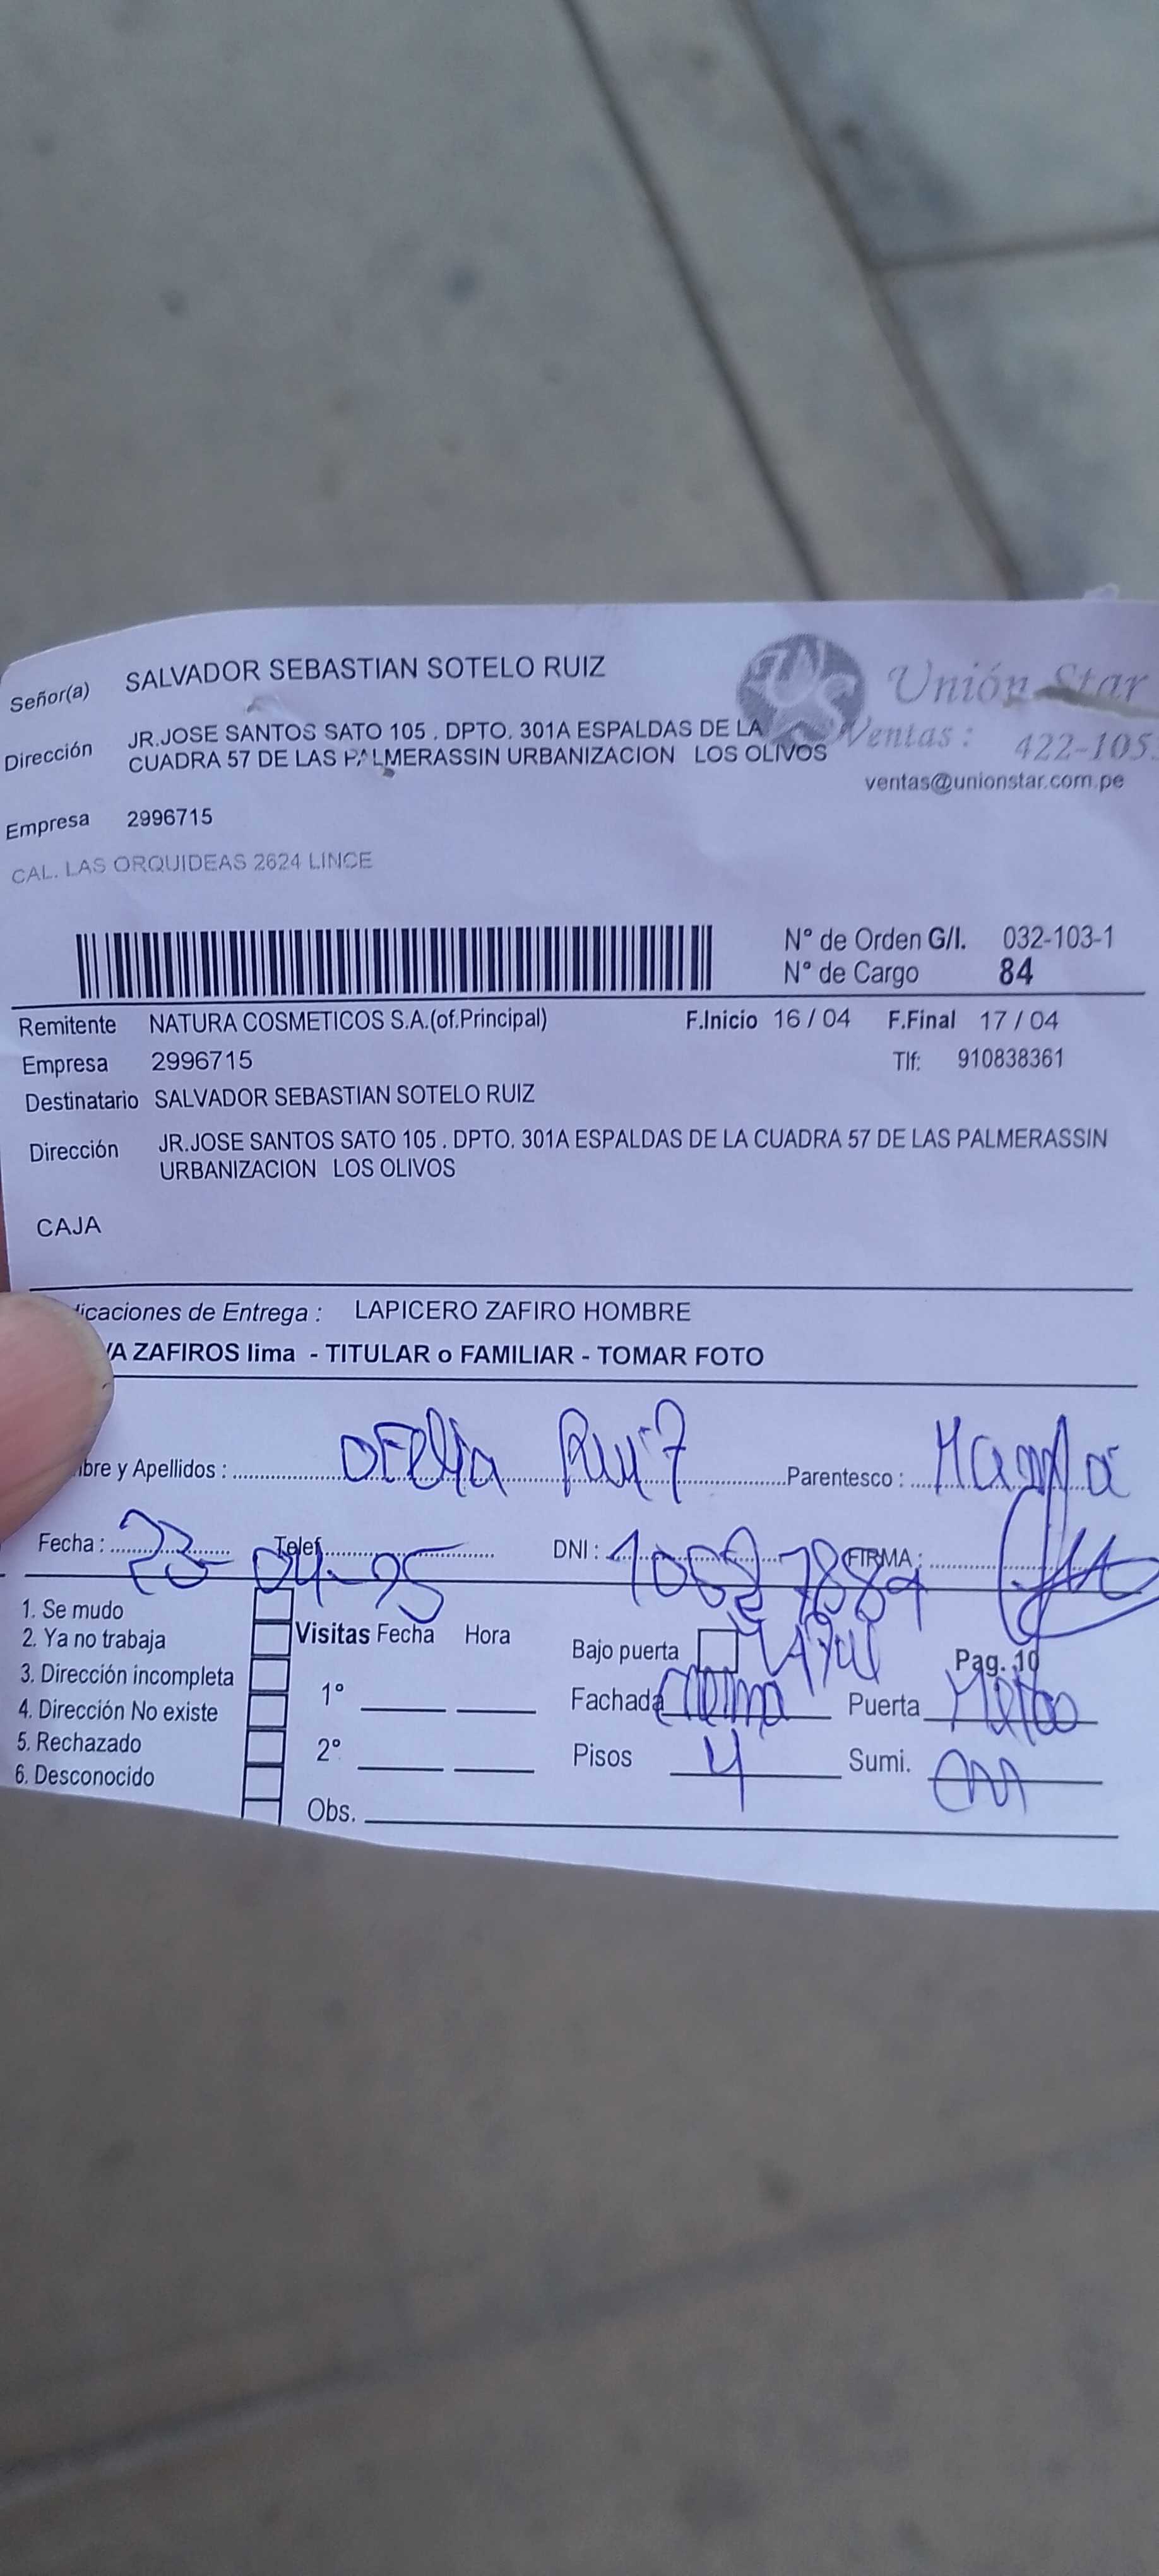 Señor(a) SALVADOR SEBASTIAN SOTELO RUIZ
Unión Star
Dirección JR.JOSE SANTOS SATO 105 . DPTO. 301A ESPALDAS DE LA
CUADRA 57 DE LAS PALMERASSIN URBANIZACION LOS OLIVOS
Ventas : 422-105
ventas@unionstar.com.pe
Empresa 2996715
CAL. LAS ORQUIDEAS 2624 LINCE
N° de Orden G/I. 032-103-1
N° de Cargo 84
Remitente NATURA COSMETICOS S.A.(of.Principal) F.Inicio 16 / 04 F.Final 17 / 04
Empresa 2996715 Tlf: 910838361
Destinatario SALVADOR SEBASTIAN SOTELO RUIZ
Dirección JR.JOSE SANTOS SATO 105 . DPTO. 301A ESPALDAS DE LA CUADRA 57 DE LAS PALMERASSIN
URBANIZACION LOS OLIVOS
CAJA
icaciones de Entrega : LAPICERO ZAFIRO HOMBRE
VA ZAFIROS lima - TITULAR o FAMILIAR - TOMAR FOTO
bre y Apellidos : OFElia Ruiz Parentesco : Mamá
Fecha : 23-04-25 Telef. DNI : FIRMA :
1. Se mudo
2. Ya no trabaja Visitas Fecha Hora Bajo puerta Pag. 10
3. Dirección incompleta
4. Dirección No existe 1° Fachada Puerta
5. Rechazado 2° Pisos 4 Sumi.
6. Desconocido
Obs.